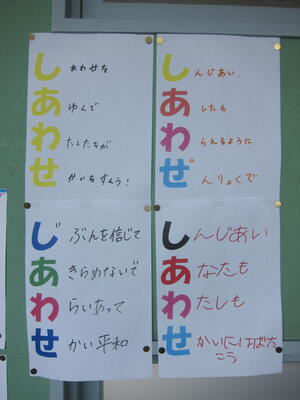 しあわせを
あゆんで
わたしたちが
せかいをすくう!
しんじあい、
あしたも
わらえるように
ぜんりょくで
じぶんを信じて
あきらめないで
わらいあって
せかい平和
しんじあい
あなたも
わたしも
せかいにはばた
こう